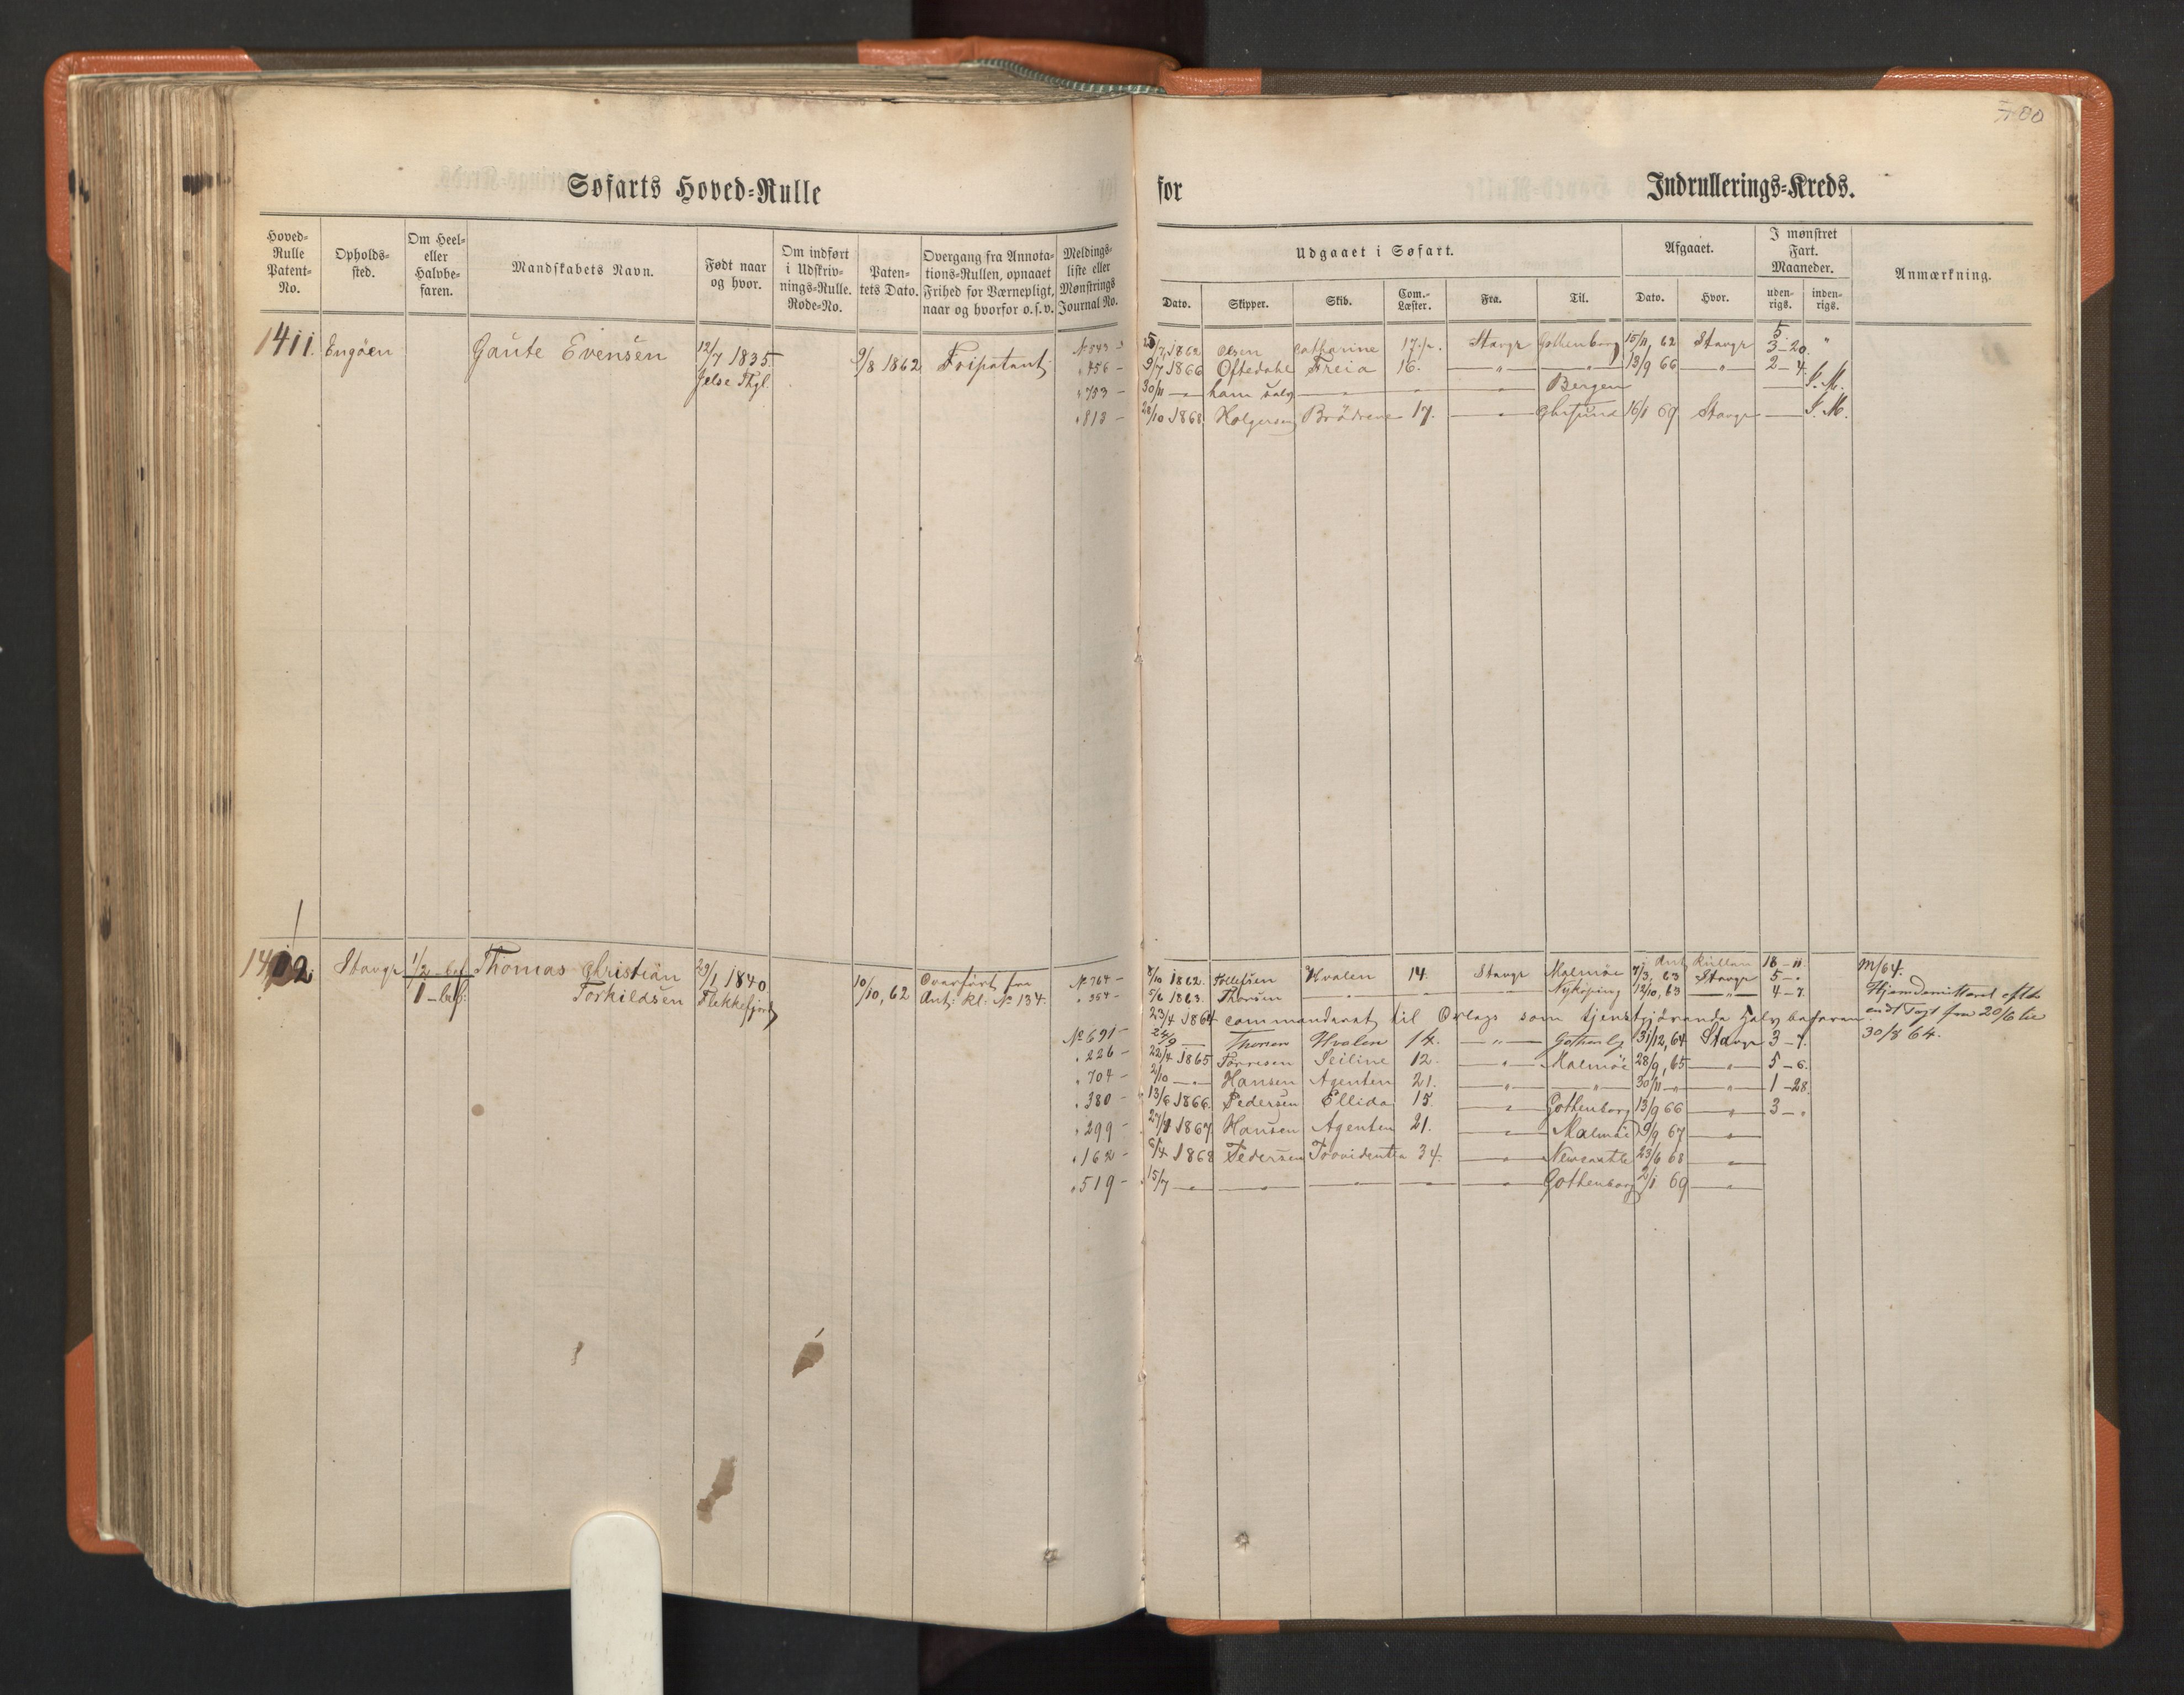 700
Søfarts Hoved-Rulle
for
Indrullerings-Kreds.
Hoved-Rulle Patent-No. Opholds-sted. Om Heel- eller Halvbe-faren. Mandskabets Navn. Født naar og hvor. Om indført i Udskriv-nings-Rulle. Rode-No. Paten-tets Dato. Overgang fra Annota-tions-Rullen, opnaaet Frihed for Værnepligt, naar og hvorfor o.s.v. Meldings-liste eller Mønstrings Journal No.
Udgaaet i Søfart. Afgaaet. I mønstret Fart. Maaneder. Anmærkning.
Dato. Skipper. Skib. Com.-Læster. Fra. Til. Dato. Hvor. uden-rigs. inden-rigs.
1411. Engöen Gaute Evensen 12/7 1835 9/8 1862 Fripatent
Jelse Thgl.
No 843 - 1862 Olsen Catharine 17 1/2. Stavgr Gottenborg 15/11, 62 Stavgr 3-20 "
" 456 - 9/7 1866 Oftedahl Freia 16. — " — — " — 13/9 66 — " — 2-4.
" 753 - 30/11 — ham selv — " — — " — Bergen — S. M.
" 813 - 28/10 1868 Holgersen Brödrene 17. — " — 16/1 69 Stavgr — S. M.
1412. Stavgr 1/2 bef Thomas Christian 29/1 1840 10/10, 62 Overfört fra
1 - bef: Torkildsen Flekkefjord Ant: kl: No 134.
Ant Rullen 18-11. M/64.
No 764 - 8/10 1862. Tollefsen Hvalen 14. Stavgr Malmöe 7/3, 63 Stavgr 5-"
" 354 - 5/6 1863. Thorsen — " — — " — — " — Nyköping 12/10, 63 — " — 4-7 Hjemdemitteret efter
23/4 1864 commanderet til Orlogs som tjenstgjörende Halvbefaren endt Togt fra 20/6 til
No 691 - 24/9 — Thorsen Hvalen 14. — " — Gothenbg 31/12, 64 Stavgr 3-7. 30/8 64.
" 226 - 22/4 1865 Torresen Seiline 12. — " — Malmöe 28/9, 65 — " — 5-6.
" 704 - 2/10 — " — Hansen Agenten 21. — " — — " — 30/11 — " — " — 1-28.
" 380 - 13/6 1866. Pedersen Ellida 15. — " — Gothenborg 13/9 66 — " — 3-"
" 299 - 1867 Hansen Agenten 21. — " — Malmöe 9/9 67 — " —
" 162 - 6/4 1868 Pedersen Providentia 34. — " — Newcastle 23/6 68 — " —
" 519 - 15/7 — " — — " — — " — — " — — " — Gothenborg 2/1 69 — " —